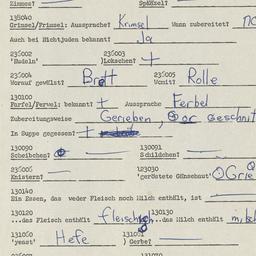 Zimmes? Spätzel?
135040
Grimsel/Frimsel: Aussprache? Krimsel Wann zubereitet?
Auch bei Nichtjuden bekannt? Ja
236002 236003
'Nudeln' )Lokschen? +
236004 236005
Worauf gewälzt? Brett Womit? Rolle
130100
Farfel/Fervel: bekannt? + Aussprache Ferbel
Zubereitungsweise Gerieben, or geschnit
In Suppe gegessen? +
130090 130091
Scheibchen? Schildchen?
236006 123030
Knistern? 'geröstete Gänsehaut' Grie
130140
Ein Essen, das weder Fleisch noch Milch enthält, ist
130120 130130
...das Fleisch enthält fleischig ...das Milch enthält milch
131060 131061
'yeast' Hefe ) Gerbe?